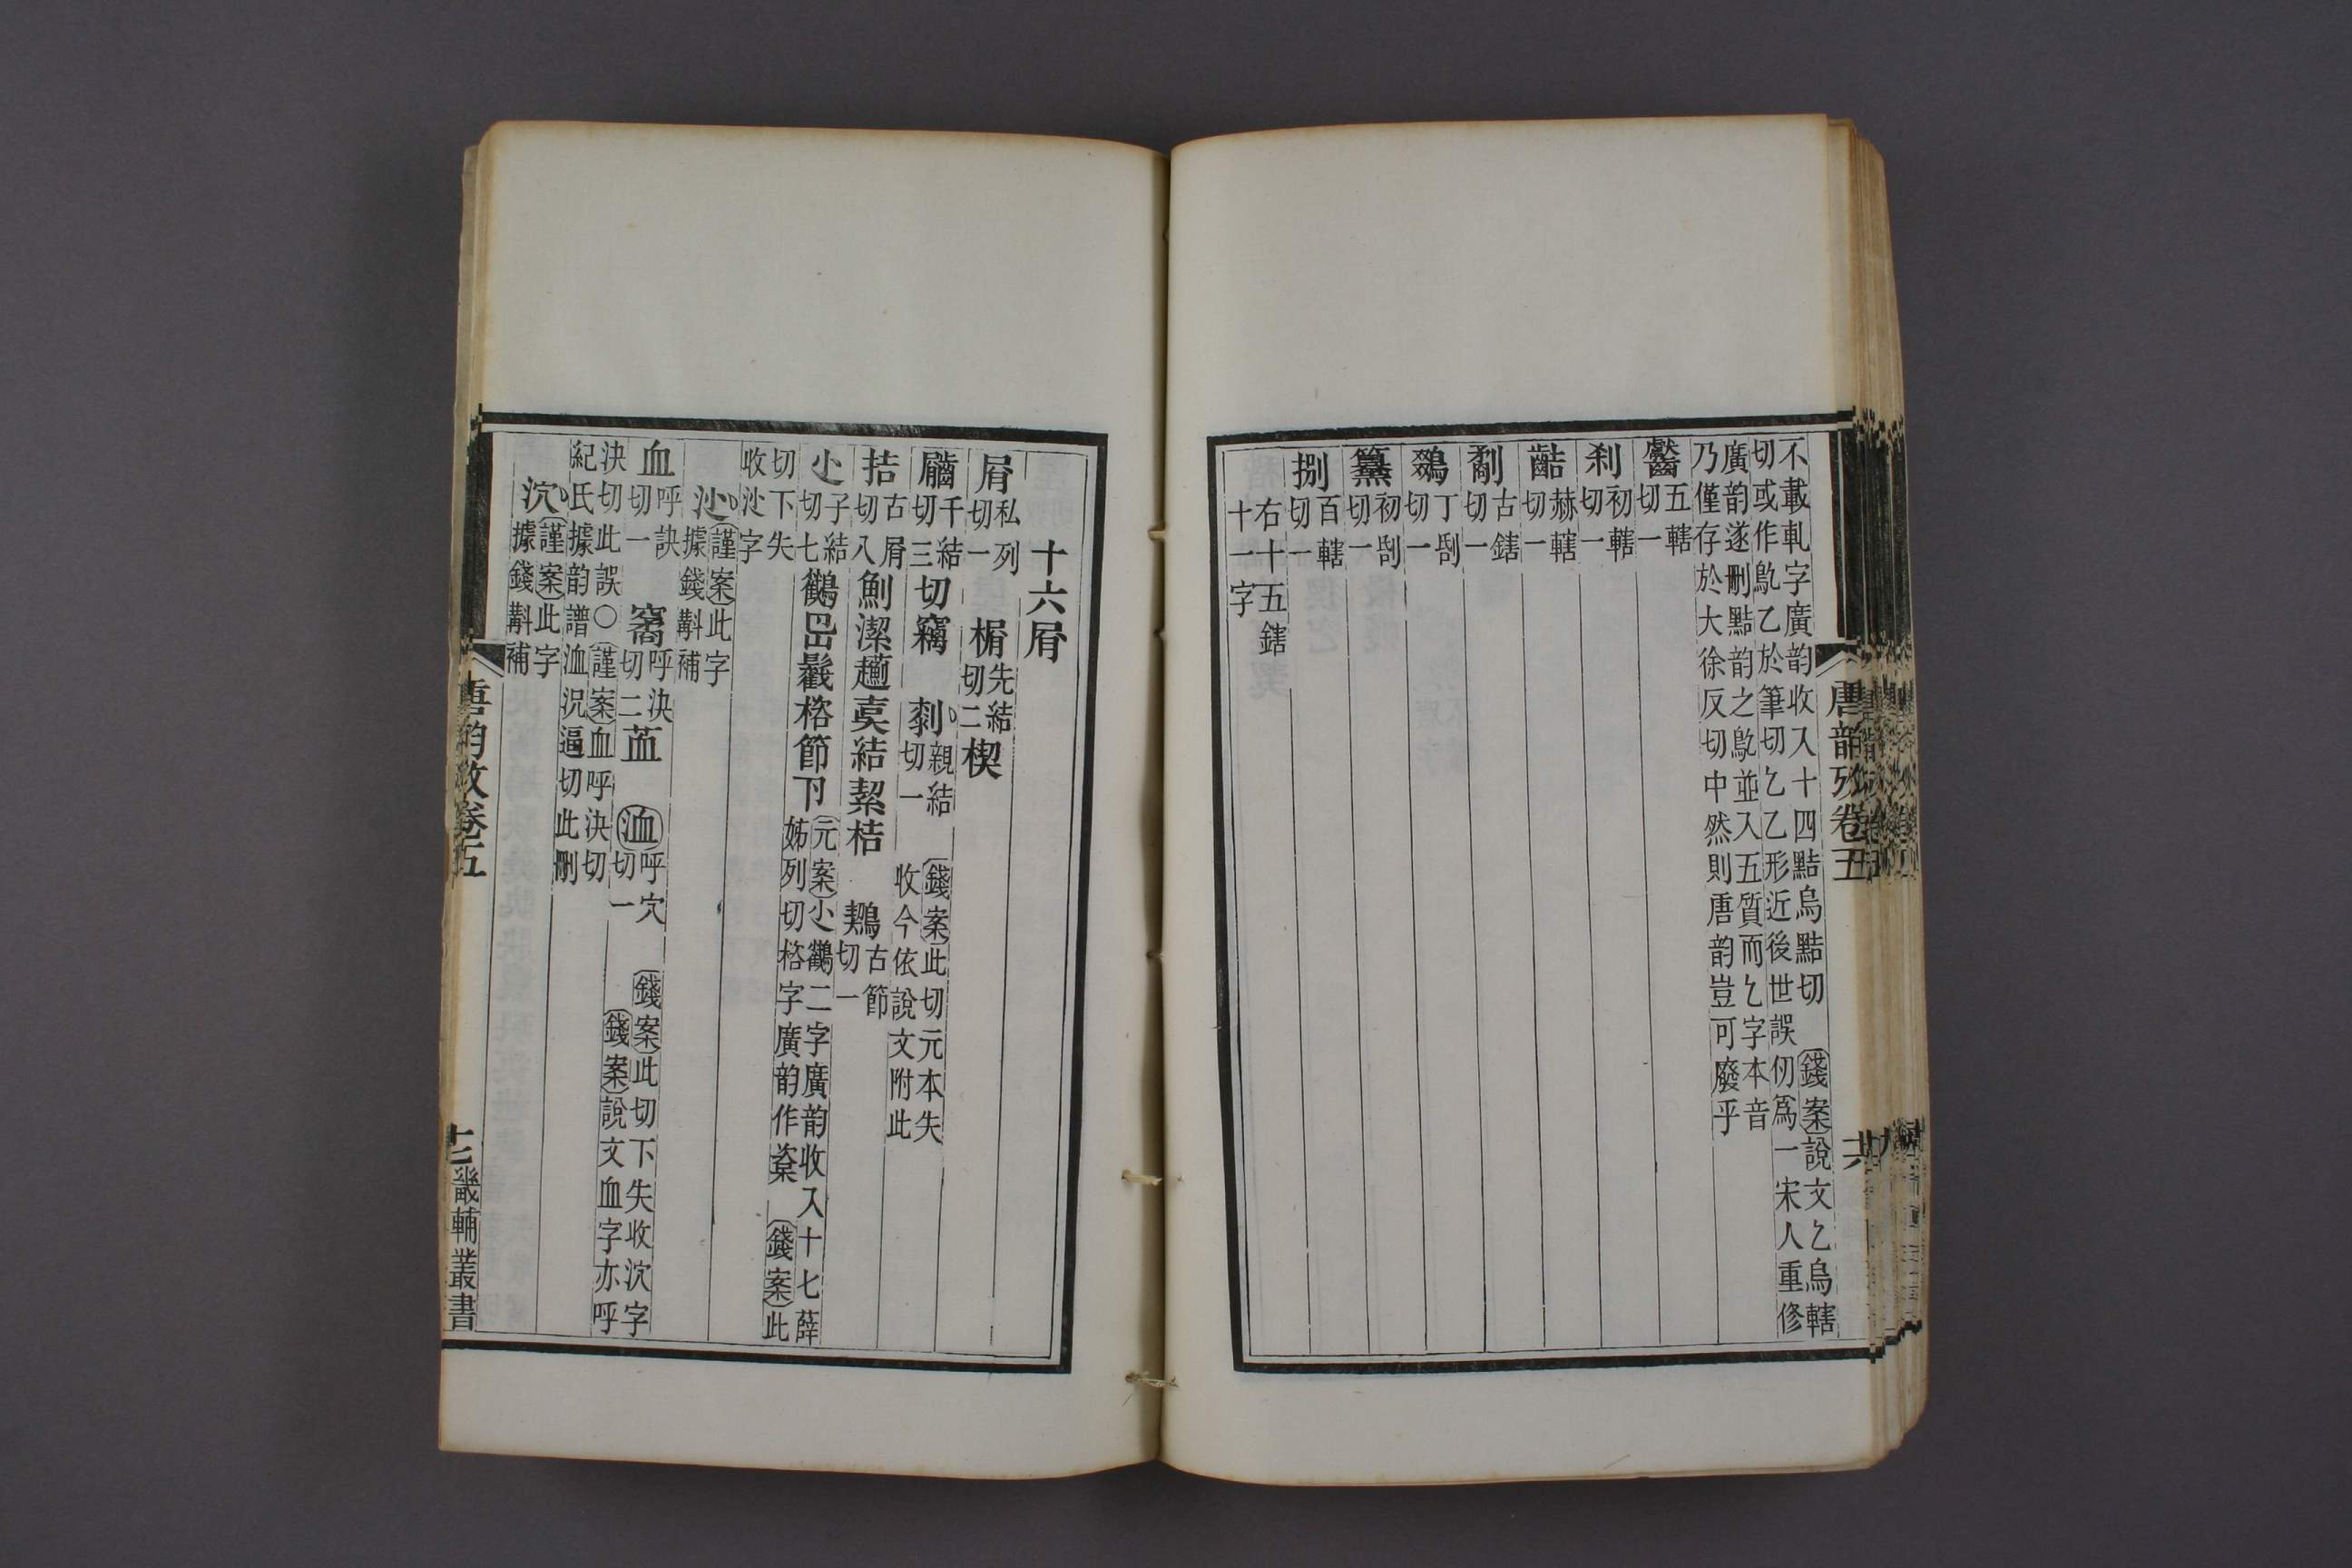 不載軋字廣韵收入十四黠烏黠切　錢案說文乙烏轄
切或作鳦乙於筆切乙乙形近後世誤仞爲一宋人重修
廣韵遂刪黠韵之鳦並入五質而乙字本音
乃僅存於大徐反切中然則唐韵豈可廢乎
齾五轄切一
刹初轄切一
䶗赫轄切一
劀古鎋切一
鵽丁刮切一
䉵初刮切一
捌百轄切一
右十五鎋
十一字
唐韵攷卷五
十六屑
屑私列切一　楈先結切二楔
䶪千結切三切竊　㓨親結切一　錢案此切元本失收今依說文附此
拮古屑切八魝潔趌奊結絜桔　鶷古節切一
尐子結切七鸛岊䰏楶節卪元案尐鸛二字廣韵收入十七薛姊列切楶字廣韵作楶　錢案此
切下失收㳐字　㳐謹案此字據錢斠補
血呼訣切一　窩呼決切二䒸　洫呼穴切一　錢案此切下失收泬字　錢案說文血字亦呼
決切此誤○謹案血呼決切
紀氏據韵譜洫況逼切此刪
泬謹案此字據錢斠補
唐韵攷卷五
十七
畿輔叢書